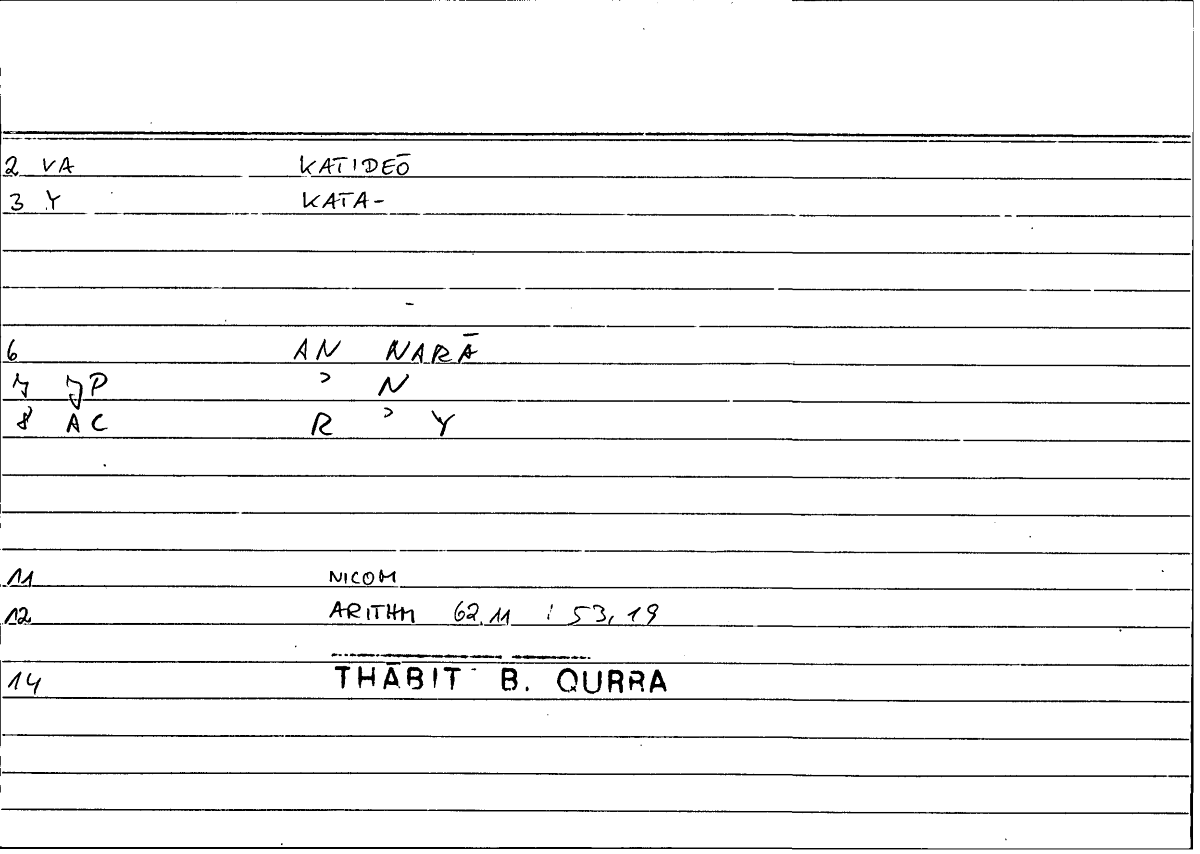 2 VA KATIDEŌ
3 Y KATA-
6 AN NARĀ
7 JP ʾ N
8 AC R ʾ Y
11 NICOM
12 ARITHM 62,11 : 53,19
14 THĀBIT B. QURRA